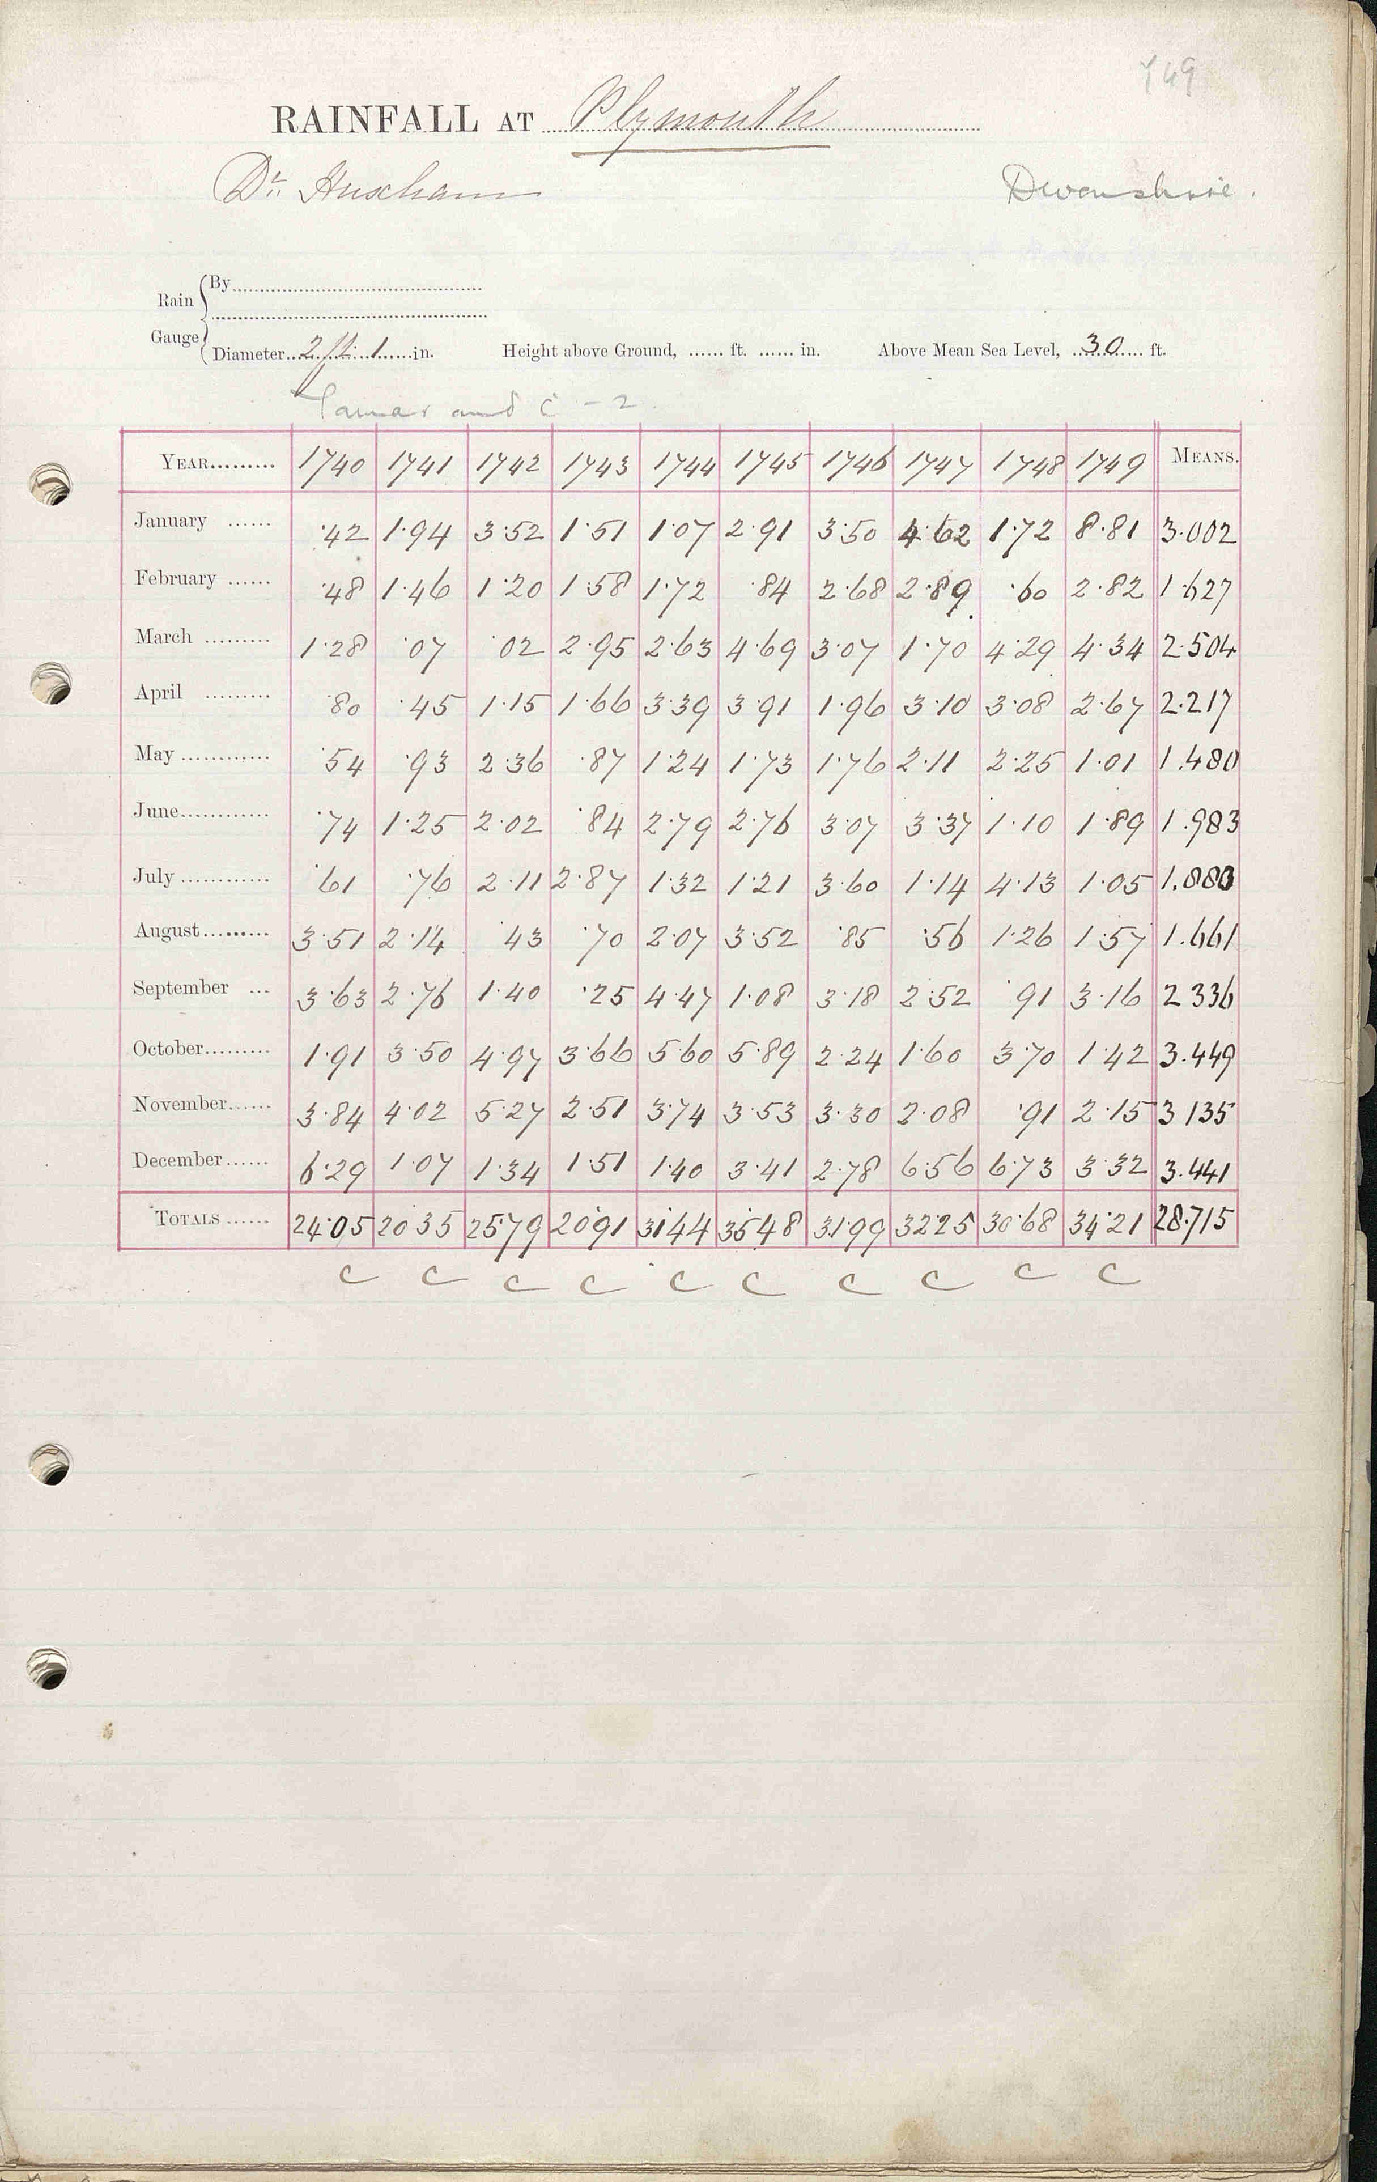 749
RAINFALL AT Plymouth
Dr. Huxham Devonshire.
Rain Gauge
By
Diameter 2 ft. 1 in. Height above Ground, ...... ft. ...... in. Above Mean Sea Level, 30 ft.
Tamar and C - 2.
YEAR......... 1740 1741 1742 1743 1744 1745 1746 1747 1748 1749 MEANS.
January ...... ·42 1·94 3·52 1·51 1·07 2·91 3·50 4·62 1·72 8·81 3·002
February ...... ·48 1·46 1·20 1·58 1·72 ·84 2·68 2·89 ·60 2·82 1·627
March ......... 1·28 ·07 ·02 2·95 2·63 4·69 3·07 1·70 4·29 4·34 2·504
April ......... ·80 ·45 1·15 1·66 3·39 3·91 1·96 3·10 3·08 2·67 2·217
May ............ ·54 ·93 2·36 ·87 1·24 1·73 1·76 2·11 2·25 1·01 1.480
June............. ·74 1·25 2·02 ·84 2·79 2·76 3·07 3·37 1·10 1·89 1.983
July ............ ·61 ·76 2·11 2·87 1·32 1·21 3·60 1·14 4·13 1·05 1.880
August ......... 3·51 2·14 ·43 ·70 2·07 3·52 ·85 ·56 1·26 1·57 1.661
September ... 3·63 2·76 1·40 ·25 4·47 1·08 3·18 2·52 ·91 3·16 2 336
October......... 1·91 3·50 4·97 3·66 5·60 5·89 2·24 1·60 3·70 1·42 3.449
November...... 3·84 4·02 5·27 2·51 3·74 3·53 3·30 2·08 ·91 2·15 3 135
December...... 6·29 1·07 1·34 1·51 1·40 3·41 2·78 6·56 6·73 3·32 3.441
TOTALS ...... 24·05 20 35 25·79 20·91 31·44 35·48 31·99 32·25 30·68 34·21 28·715
C C C C C C C C C C